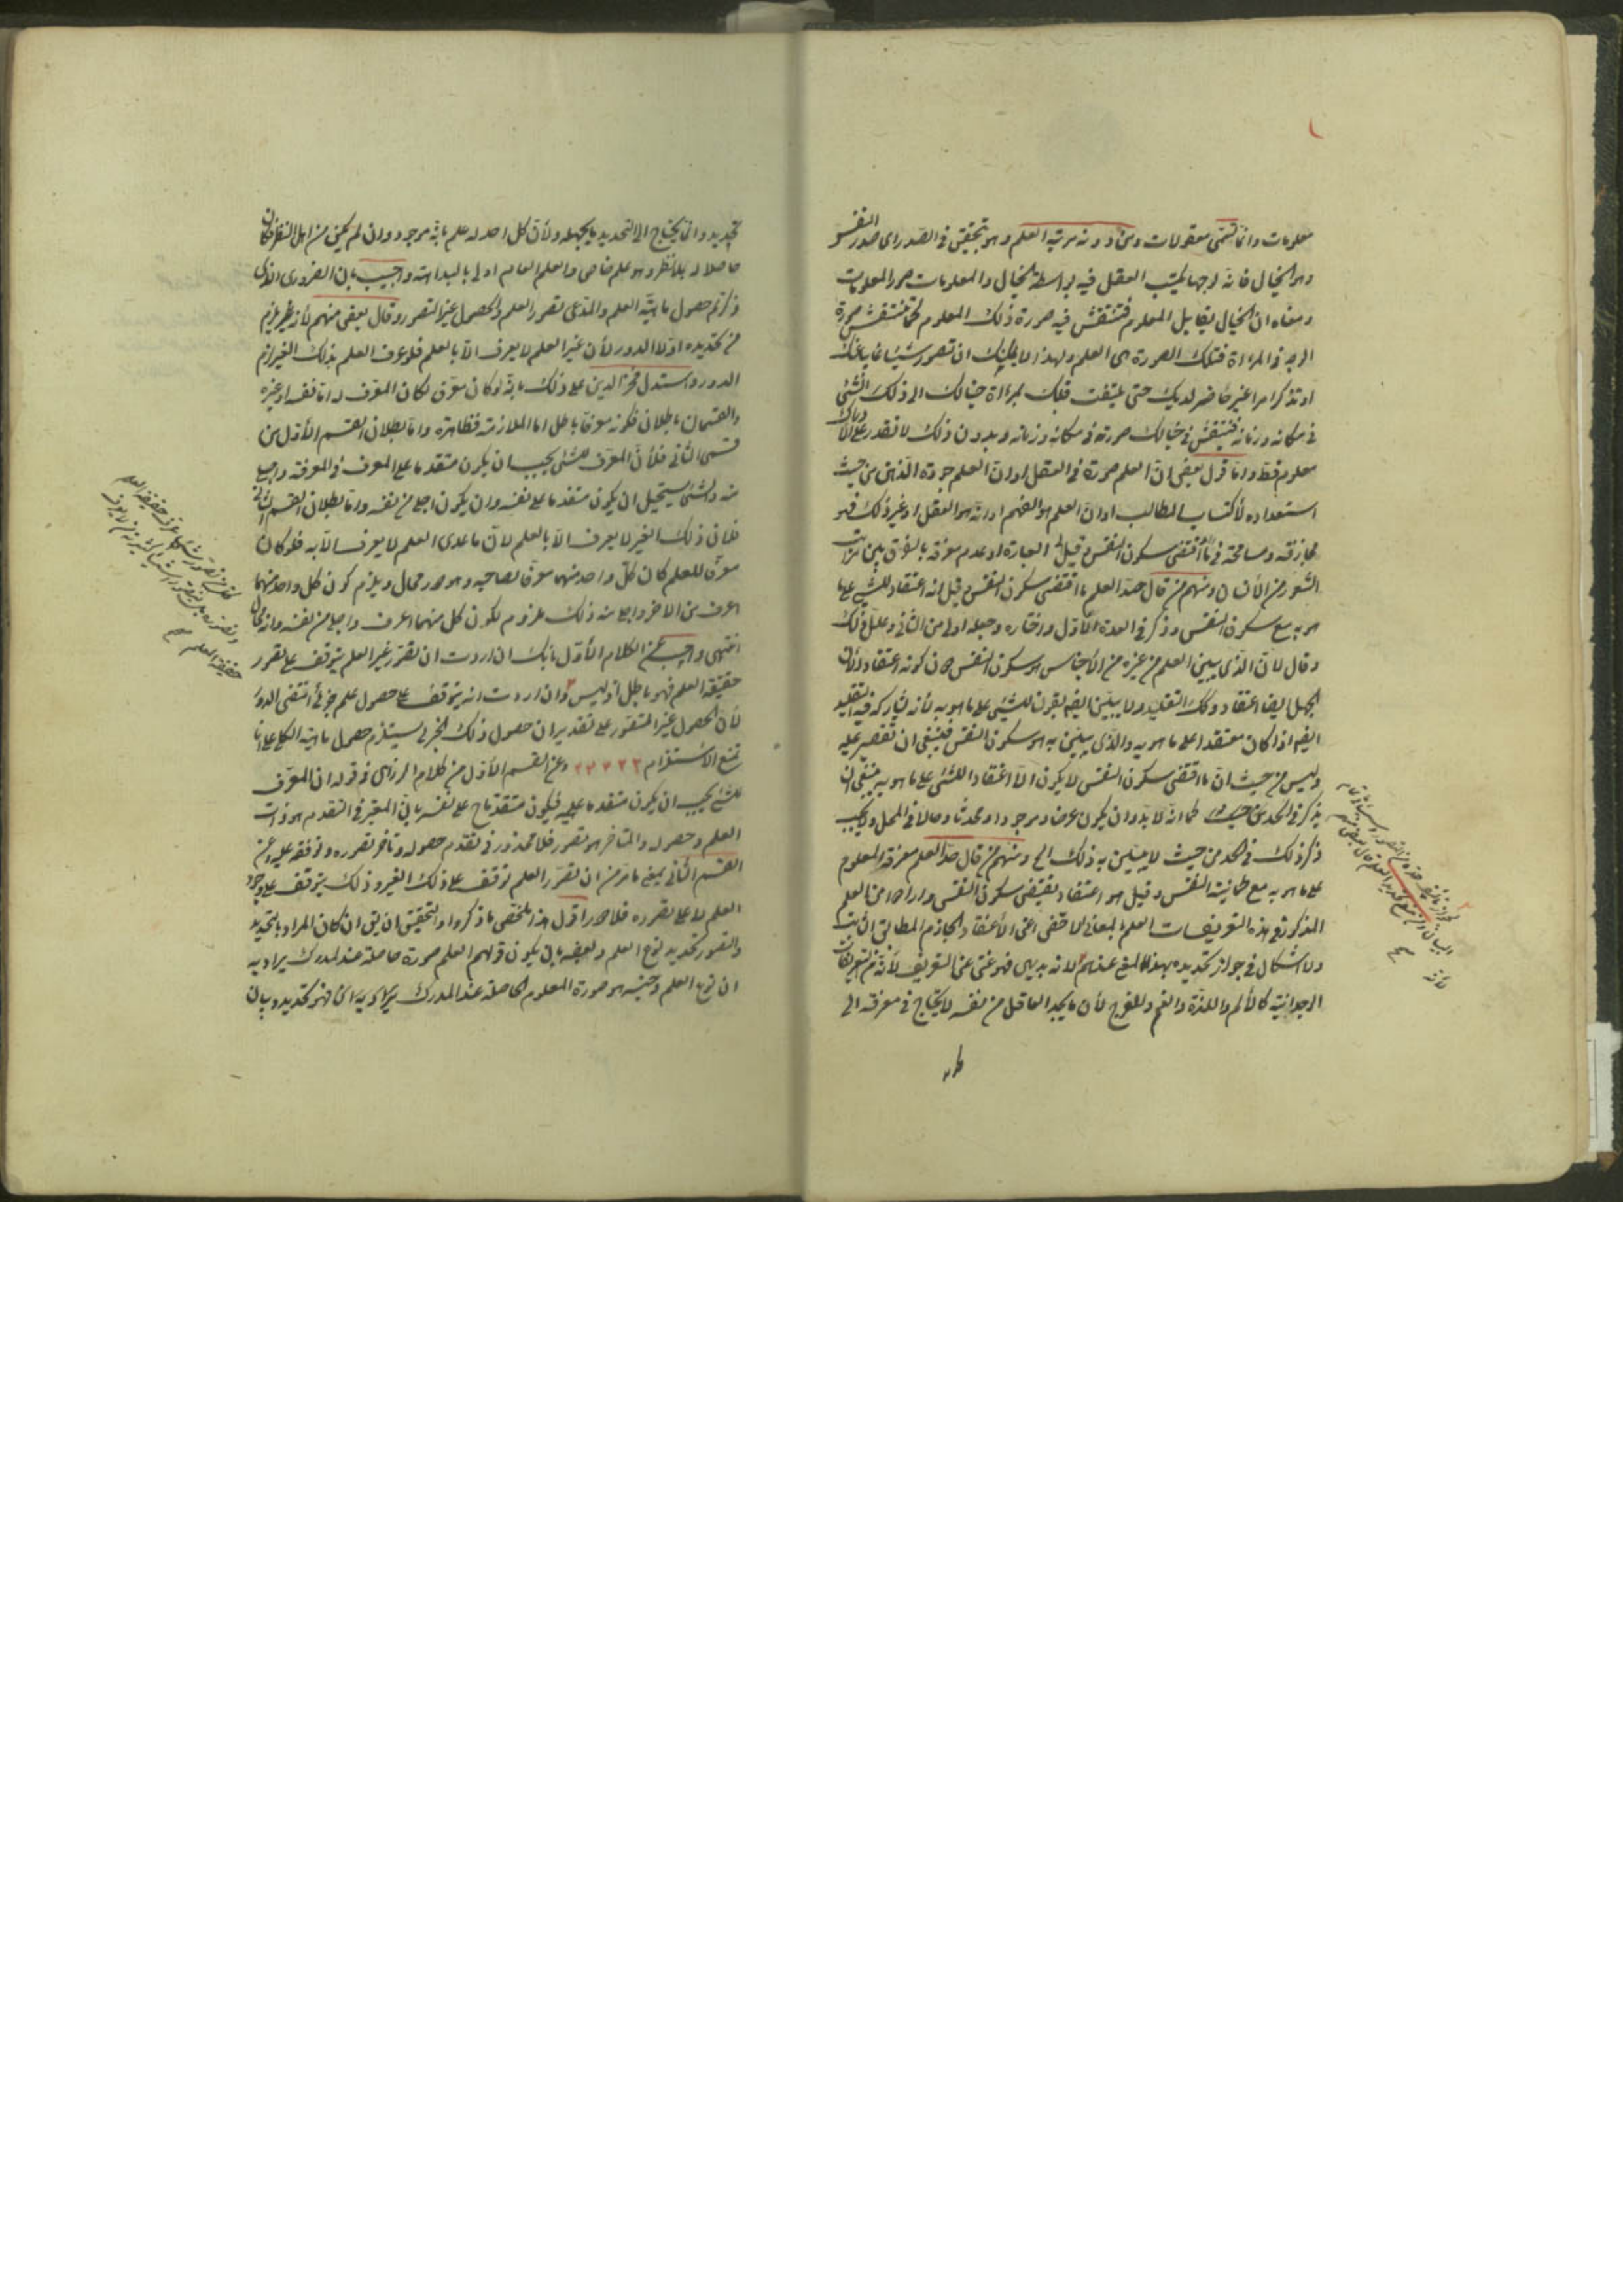 معلومات وانما تسمى معقولات ومن دونه مرتبة العلم وهو تحقق في الصدر اي صدر النفس
وهو الخيال فانه لوجها يكتب العقل فيه بواسطة الخيال والمعلومات صور المعلومات
ومعناه ان الخيال يقابل المعلوم فتنتقش فيه صورة ذلك المعلوم كما تنتقش صورة
الوجه في المرءاة فتلك الصورة هي العلم ولهذا لا يمكنك ان تصور شيئا غايبا عنك
او تذكر امرا غير حاضر لديك حتى يلتفت قلبك بمرءاة خيالك الى ذلك الشئ
في مكانه وزمانه فتنتقش في خيالك صورته في مكانه وزمانه وبدون ذلك لا تقدر على الادراك
معلوم قط واما قول بعض ان العلم صورة في العقل او ان العلم جودة الذهن من حيث
استعداده لاكتساب المطالب او ان العلم هو الفهم او انه هو العقل او غير ذلك فهو
مجازفة ومسامحة في العبارة او عدم معرفة بالفرق بين مراتب
الشعور من الانسان ومنهم من قال حد العلم ما اقتضى سكون النفس وقيل انه اعتقاد للشئ على ما
هو به مع سكون النفس وذكر في العدة الاول واختاره وجعله اولى من الثاني وعلل ذلك
وقال لان الذي يبين العلم من غيره من الاجناس هو سكون النفس دون كونه اعتقادا لان
الجهل ايضا اعتقاد وكذلك التقليد ولا يبين ايضا بقولنا للشئ على ما هو به لانه يشاركه فيه التقليد
ايضا اذا كان معتقدا على ما هو به والذي يبين به هو سكون النفس فينبغي ان تقصير عليه
وليس من حيث ان ما اقتضى سكون النفس لا يكون الا اعتقادا للشئ على ما هو به ينبغي ان
يذكر في الحد كما انه لا بد وان يكون عرضا وموجودا ومحدثا وحالا في المحل ولا يجب
ذكر ذلك في الحد من حيث لا يبين به ذلك الخ ومنهم من قال حد العلم معرفة المعلوم
على ما هو به مع طمانينة النفس وقيل هو اعتقاد يقتضي سكون النفس وارادوا من العلم
المذكور في هذه التعريفات العلم بالمعنى الاخص اعني الاعتقاد الجازم المطابق الثابت
ولا اشكال في جواز تحديده بهذا المعنى عندهم لانه بديهي فهو غني عن التعريف لانه من التعريفات
الوجدانية كالالم واللذة والغم والفرح لان ما يجد العاقل من نفسه لا يحتاج في معرفته الى
تحديد وانما يحتاج الى التحديد ما يجهله ولان كل احد له علم بانه موجود وان لم يكن من اهل النظر فكان
حاصلا له بلا نظر وهو علم خاص والعلم العام اولى بالبداهة واجيب بان الضروري الذي
ذكرتم حصول ماهية العلم والمدعى تصور العلم والحصول غير التصور وقال بعض منهم لانه نظر يلزم
من تحديده اولا الدور لان غير العلم لا يعرف الا بالعلم فلو عرف العلم بذلك الغير لزم
الدور واستدل فخر الدين على ذلك بانه لو كان معرفا لكان المعرف له اما نفسه او غيره
والقسمان باطلان فكونه معرفا باطل اما الملازمة فظاهرة واما بطلان القسم الاول من
قسمى التالي فلأن المعرف للشئ يجب ان يكون متقدما على المعرف في المعرفة واجلى
منه والشئ يستحيل ان يكون متقدما على نفسه وان يكون اجلى من نفسه واما بطلان القسم الثاني
فلان ذلك الغير لا يعرف الا بالعلم لان ما عدى العلم لا يعرف الا به فلو كان
معرفا للعلم كان كل واحد منهما معرفا لصاحبه وهو دور محال ويلزم كون كل واحد منهما
اعرف من الاخر واجلى منه وذلك ملزوم لكون كل منهما اعرف واجلى من نفسه وانه محال
انتهى واجيب عن الكلام الاول بانك ان اردت ان تصور غير العلم يتوقف على تصور
حقيقة العلم فهو باطل اذ ليس وان اردت انه يتوقف على حصول علم جزئي انتفى الدور
لان الحصول غير التصور على تقدير ان حصول ذلك الجزئي يستلزم حصول ماهية الكلي على انا
نمنع الاستلزام وعن القسم الاول من كلام الرازي في قوله ان المعرف
للشئ يجب ان يكون متقدما عليه فيكون متقدما على نفسه بان المعتبر في التقدم هو ذات
العلم وحصوله والمتاخر هو تصوره فلا محذور في تقدم حصوله وتاخر تصوره وتوقفه عليه وعن
القسم الثاني بمعنى ما مر من ان تصور العلم توقف على ذلك الغير وذلك يتوقف على وجود
العلم لا على تصوره فلا دور اقول هذا ملخص ما ذكروا والتحقيق ان يق ان كان المراد بالتحديد
والتصور تحديد نوع العلم وبعضه بان يكون قولهم العلم صورة حاصلة عند المدرك يراد به
ان نوع العلم وجنسه هو صورة المعلوم الحاصلة عند المدرك فهو تحديد وبيان